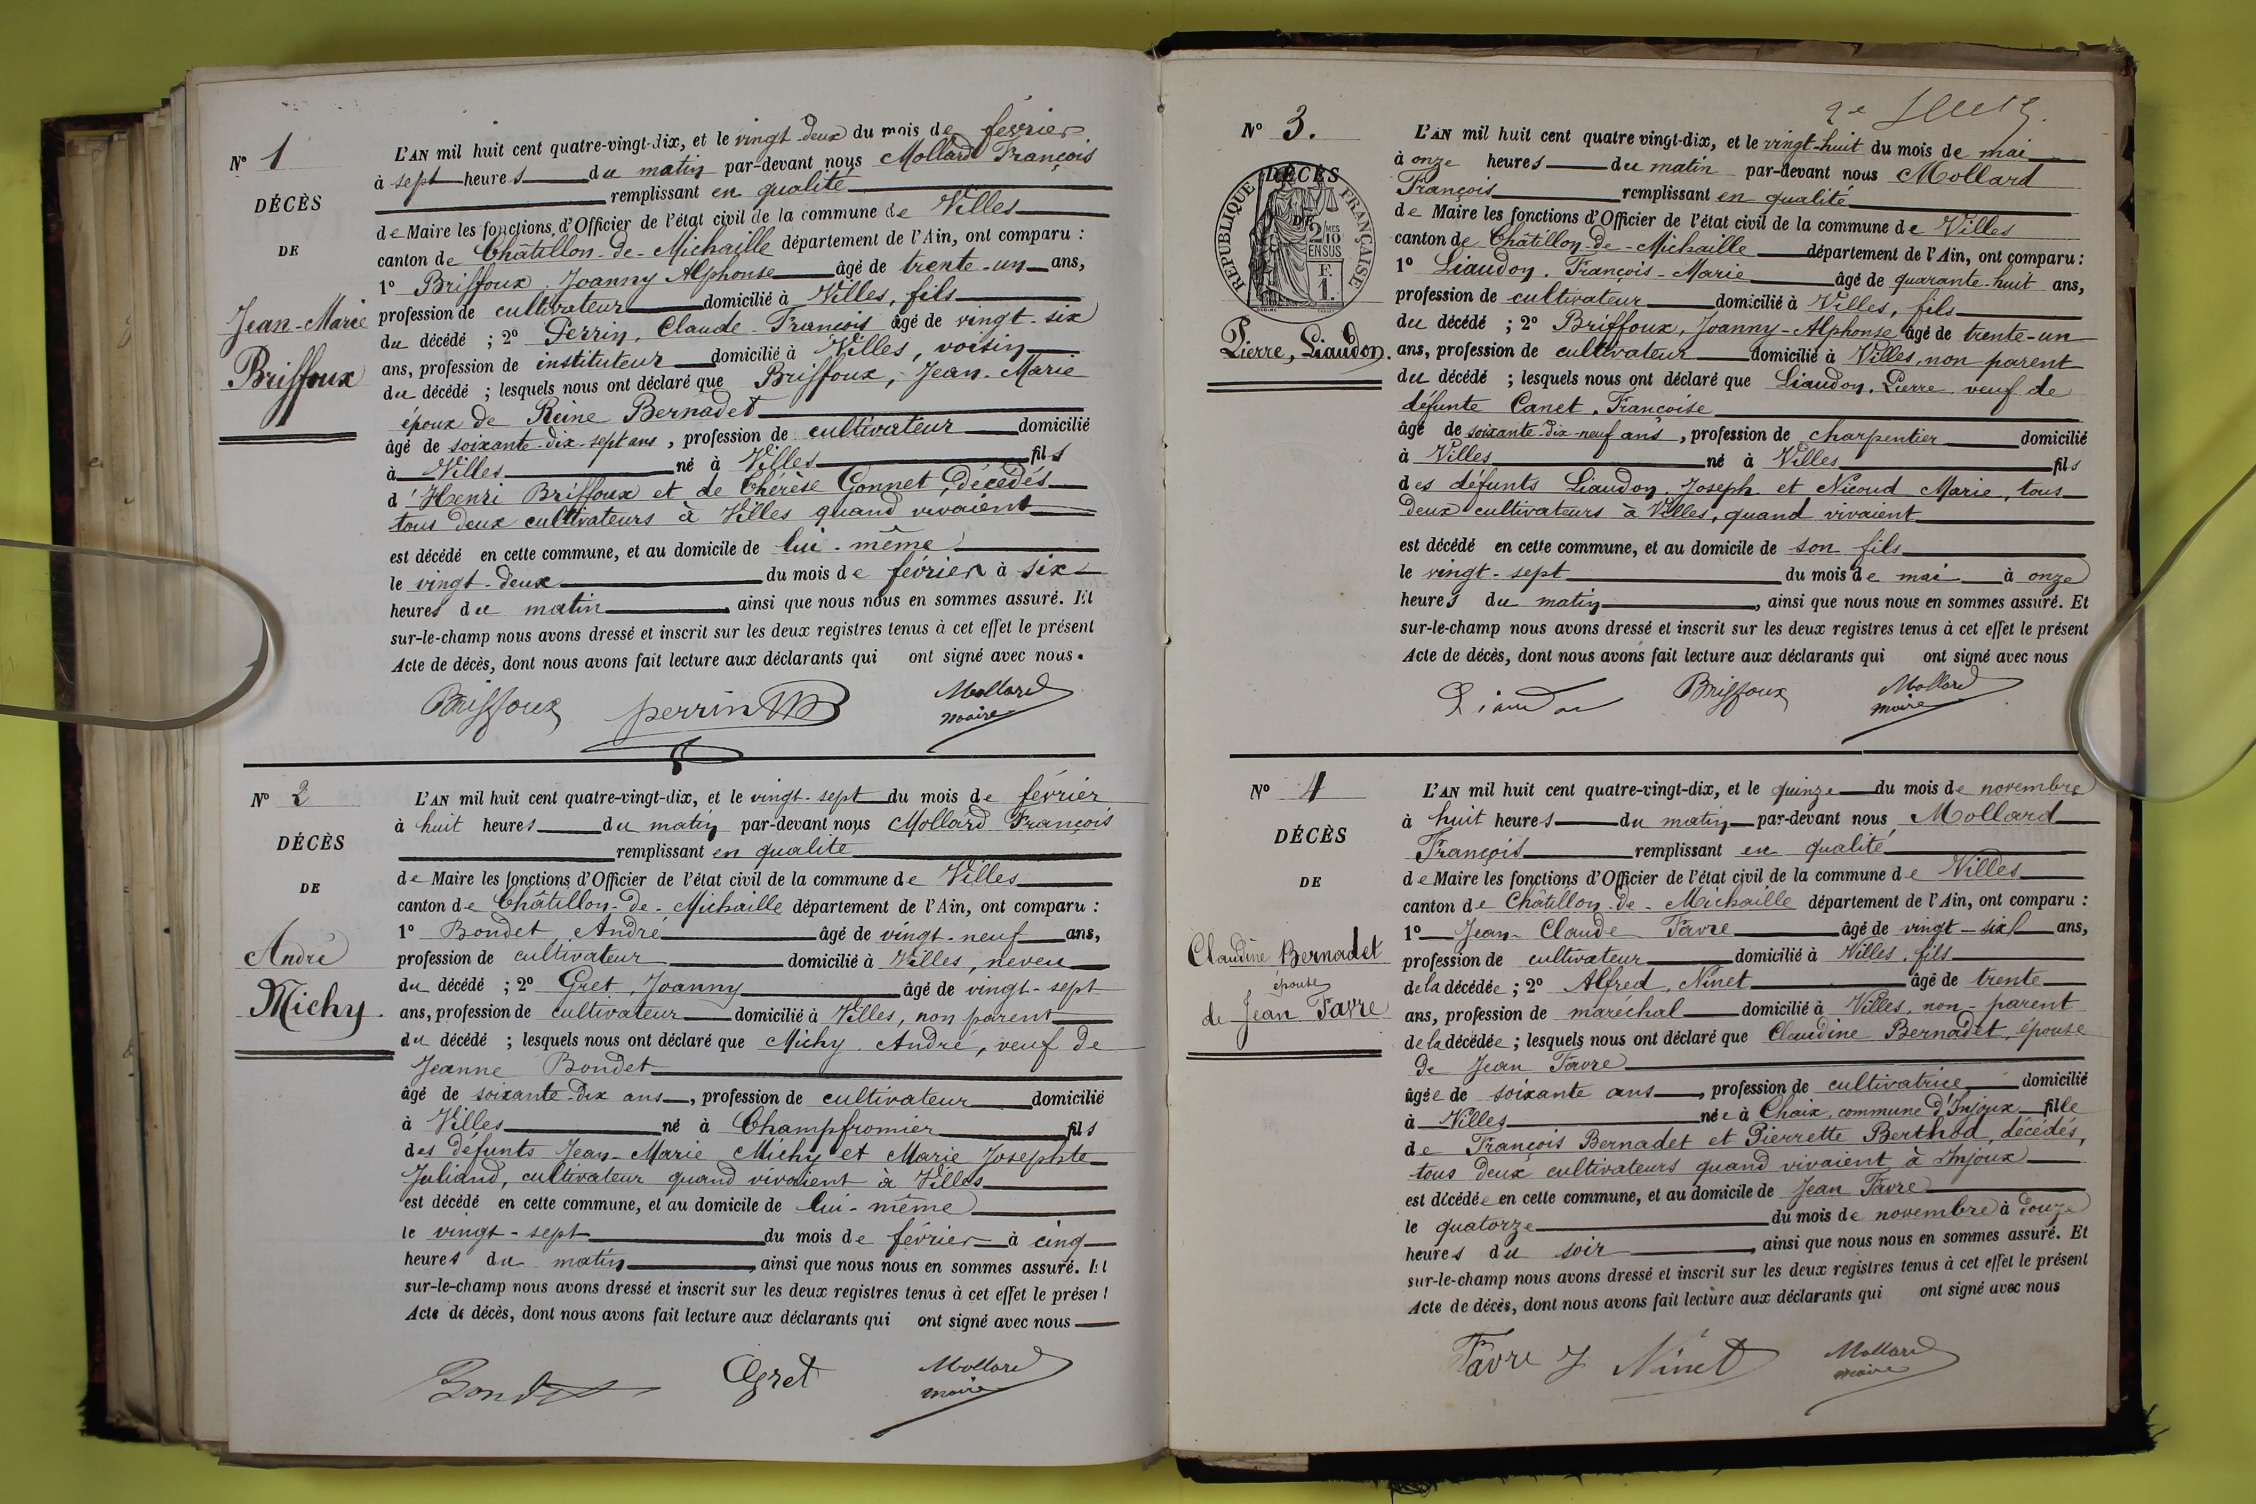 N° 1
DÉCÈS
DE
Jean-Marie
Briffoux
L'AN mil huit cent quatre-vingt-dix, et le vingt-deux du mois de février
à sept heures du matin par-devant nous Mollard François
remplissant en qualité
de Maire les fonctions d'Officier de l'état civil de la commune de Villes
canton de Châtillon-de-Michaille département de l'Ain, ont comparu :
1° Briffoux, Joanny Alphonse âgé de trente-un ans,
profession de cultivateur domicilié à Villes, fils
du décédé ; 2° Perrin, Claude-François âgé de vingt-six
ans, profession de instituteur domicilié à Villes, voisin
du décédé ; lesquels nous ont déclaré que Briffoux, Jean-Marie
époux de Reine Bernadet
âgé de soixante-dix-sept ans, profession de cultivateur domicilié
à Villes né à Villes fils
d'Henri Briffoux et de Thérèse Gonnet, décédés
tous deux cultivateurs à Villes quand vivaient
est décédé en cette commune, et au domicile de lui-même
le vingt-deux du mois de février à six
heures du matin, ainsi que nous nous en sommes assuré. Et
sur-le-champ nous avons dressé et inscrit sur les deux registres tenus à cet effet le présent
Acte de décès, dont nous avons fait lecture aux déclarants qui ont signé avec nous.
Briffoux Perrin Mollard
maire
N° 2
DÉCÈS
DE
André
Michy.
L'AN mil huit cent quatre-vingt-dix, et le vingt-sept du mois de février
à huit heures du matin par-devant nous Mollard François
remplissant en qualité
de Maire les fonctions d'Officier de l'état civil de la commune de Villes
canton de Châtillon-de-Michaille département de l'Ain, ont comparu :
1° Bondet, André âgé de vingt-neuf ans,
profession de cultivateur domicilié à Villes, neveu
du décédé ; 2° Gret, Joanny âgé de vingt-sept
ans, profession de cultivateur domicilié à Villes, non parent
du décédé ; lesquels nous ont déclaré que Michy, André, veuf de
Jeanne Bondet
âgé de soixante-dix ans, profession de cultivateur domicilié
à Villes né à Champfromier fils
des défunts Jean-Marie Michy et Marie Josephte
Juliand, cultivateur quand vivaient à Villes
est décédé en cette commune, et au domicile de lui-même
le vingt-sept du mois de février à cinq
heures du matin, ainsi que nous nous en sommes assuré. Et
sur-le-champ nous avons dressé et inscrit sur les deux registres tenus à cet effet le présent
Acte de décès, dont nous avons fait lecture aux déclarants qui ont signé avec nous
Bondet Gret Mollard
maire
2e
N° 3.
DÉCÈS
DE
RÉPUBLIQUE FRANÇAISE
2/10 MES
EN SUS
F.
1.
Pierre, Liaudon.
L'AN mil huit cent quatre vingt-dix, et le vingt-huit du mois de mai
à onze heures du matin par-devant nous Mollard
François remplissant en qualité
de Maire les fonctions d'Officier de l'état civil de la commune de Villes
canton de Châtillon-de-Michaille département de l'Ain, ont comparu :
1° Liaudon, François-Marie âgé de quarante-huit ans,
profession de cultivateur domicilié à Villes, fils
du décédé ; 2° Briffoux, Joanny-Alphonse âgé de trente-un
ans, profession de cultivateur domicilié à Villes, non parent
du décédé ; lesquels nous ont déclaré que Liaudon, Pierre veuf de
défunte Canet, Françoise
âgé de soixante-dix-neuf ans, profession de charpentier domicilié
à Villes né à Villes fils
des défunts Liaudon, Joseph et Nicoud Marie, tous
deux cultivateurs à Villes, quand vivaient
est décédé en cette commune, et au domicile de son fils
le vingt-sept du mois de mai à onze
heures du matin, ainsi que nous nous en sommes assuré. Et
sur-le-champ nous avons dressé et inscrit sur les deux registres tenus à cet effet le présent
Acte de décès, dont nous avons fait lecture aux déclarants qui ont signé avec nous
Liaudon Briffoux Mollard
maire
N° 4
DÉCÈS
DE
Claudine Bernadet
épouse
de Jean Favre
L'AN mil huit cent quatre-vingt-dix, et le quinze du mois de novembre
à huit heures du matin par-devant nous Mollard
François remplissant en qualité
de Maire les fonctions d'Officier de l'état civil de la commune de Villes
canton de Châtillon-de-Michaille département de l'Ain, ont comparu :
1° Jean-Claude Favre âgé de vingt-six ans,
profession de cultivateur domicilié à Villes, fils
de la décédée ; 2° Alfred, Ninet âgé de trente
ans, profession de maréchal domicilié à Villes, non-parent
de la décédée ; lesquels nous ont déclaré que Claudine Bernadet, épouse
de Jean Favre
âgée de soixante ans, profession de cultivatrice domicilié
à Villes née à Chaix, commune d'Injoux fille
de François Bernadet et Pierrette Berthod, décédés,
tous deux cultivateurs quand vivaient à Injoux
est décédée en cette commune, et au domicile de Jean Favre
le quatorze du mois de novembre à douze
heures du soir, ainsi que nous nous en sommes assuré. Et
sur-le-champ nous avons dressé et inscrit sur les deux registres tenus à cet effet le présent
Acte de décès, dont nous avons fait lecture aux déclarants qui ont signé avec nous
Favre J Ninet Mollard
maire